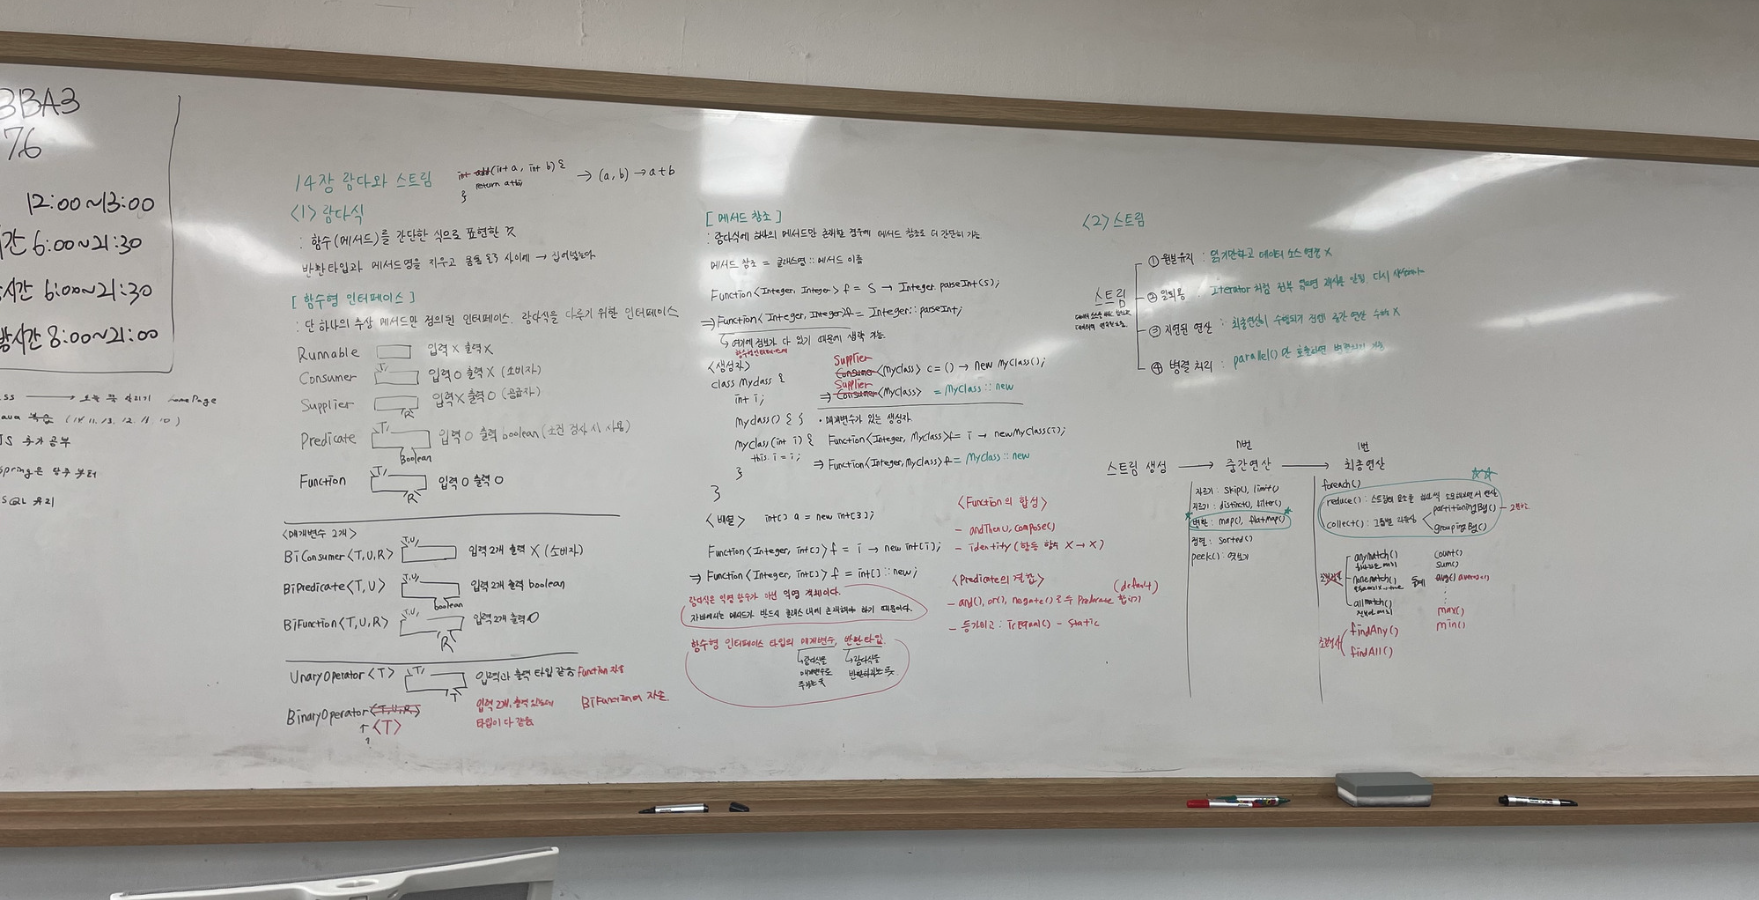 3BA3
76
12:00~13:00
시간 6:00~21:30
시간 6:00~21:30
시간 8:00~21:00
JS 추가 공부
14장 람다와 스트림
int add(int a, int b) {
return a+b;
}
→ (a, b) → a+b
<1> 람다식
: 함수(메서드)를 간단한 식으로 표현한 것
반환타입과 메서드명을 지우고
사이에 →
[ 함수형 인터페이스 ]
: 단 하나의 추상 메서드만 정의된 인터페이스. 람다식을 다루기 위한 인터페이스
Runnable 입력 X 출력 X
Consumer T, 입력 O 출력 X (소비자)
Supplier R 입력 X 출력 O (공급자)
Predicate T, Boolean 입력 O 출력 boolean (조건 검사 시 사용)
Function T, R 입력 O 출력 O
<매개변수 2개>
BiConsumer<T,U,R> T,U, 입력 2개 출력 X (소비자)
BiPredicate<T,U> T,U, boolean 입력 2개 출력 boolean
BiFunction<T,U,R> T,U, R 입력 2개 출력 O
UnaryOperator<T> T, T 입력과 출력 타입 같음 Function 자손
BinaryOperator<T,U,R> 입력 2개, 출력 BiFunction의 자손
↑ <T> 타입이 다 같음
[ 메서드 참조 ]
: 람다식에 하나의 메서드만 호출할 경우에 메서드 참조로 더 간단히 가능
메서드 참조 = 클래스명 :: 메서드 이름
Function<Integer, Integer> f = S → Integer.parseInt(S);
⇒ Function<Integer, Integer> f = Integer::parseInt;
여기에 정보가 다 있기 때문에 생략 가능.
함수형인터페이스
<생성자>
class Myclass {
int i;
myclass() { }
myclass(int i) {
this.i = i;
}
}
Supplier
Consumer<MyClass> c = () → new MyClass();
Supplier
⇒ Consumer<MyClass> = MyClass::new
• 매개변수가 있는 생성자
Function<Integer, MyClass> f = i → new MyClass(i);
⇒ Function<Integer, MyClass> f = MyClass::new
<배열> int[] a = new int[3];
Function<Integer, int[]> f = i → new int[i];
⇒ Function<Integer, int[]> f = int[]::new;
람다식은 익명 함수가 아닌 익명 객체이다.
자바에서는 메서드가 반드시 클래스 내에 존재해야 하기 때문이다.
함수형 인터페이스 타입의 매개변수, 반환타입.
람다식을
매개변수로
주는 것
람다식을
반환하는 것
<Function의 합성>
- andThen(), compose()
- identity (항등 함수 X → X)
<Predicate의 결합>
(default)
- and(), or(), negate()로 두 Predicate 합치기
- 등가비교 : isEqual() - static
<2> 스트림
스트림
① 원본유지 : 읽기만하고 데이터 소스 변경 X
② 일회용 : Iterator처럼
③ 지연된 연산 : 최종연산이 수행되기 전엔 중간 연산 수행 X
④ 병렬 처리 : parallel()만 호출하면
n번 1번
스트림 생성 → 중간연산 → 최종연산
자르기 : skip(), limit()
distinct(), filter()
변환 : map(), flatmap()
정렬 : sorted()
peek() : 엿보기
foreach()
reduce() : 스트림의 요소를
collect() : 그룹별
partitioningBy() - 2분할
groupingBy()
anymatch()
nonematch()
allmatch()
findAny()
findAll()
통계
count()
sum()
avg()
max()
min()